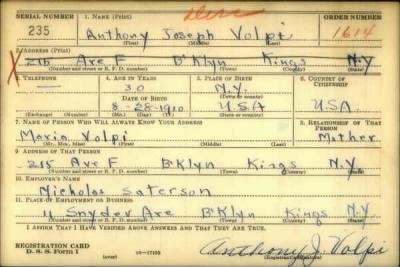 Disc
SERIAL NUMBER 1. NAME (Print) ORDER NUMBER
235 Anthony Joseph Volpi 1614
(First) (Middle) (Last)
2. ADDRESS (Print)
X 215 Ave F B'klyn Kings N.Y
(Number and street or R. F. D. number) (Town) (County) (State)
3. TELEPHONE 4. AGE IN YEARS 5. PLACE OF BIRTH 6. COUNTRY OF CITIZENSHIP
— 30 N.Y.
DATE OF BIRTH (Town or county)
8-28-1910 U.S.A U.S.A.
(Exchange) (Number) (Mo.) (Day) (Yr.) (State or country)
7. NAME OF PERSON WHO WILL ALWAYS KNOW YOUR ADDRESS 8. RELATIONSHIP OF THAT PERSON
Maria Volpi Mother
(Mr., Mrs., Miss) (First) (Middle) (Last)
9. ADDRESS OF THAT PERSON
215 Ave F B'klyn Kings N.Y.
(Number and street or R. F. D. number) (Town) (County) (State)
10. EMPLOYER'S NAME
Nicholas Saterson
11. PLACE OF EMPLOYMENT OR BUSINESS
11 Snyder Ave B'klyn Kings N.Y
(Number and street or R. F. D. number) (Town) (County) (State)
I AFFIRM THAT I HAVE VERIFIED ABOVE ANSWERS AND THAT THEY ARE TRUE.
REGISTRATION CARD
D. S. S. FORM 1 (over) Anthony J. Volpi